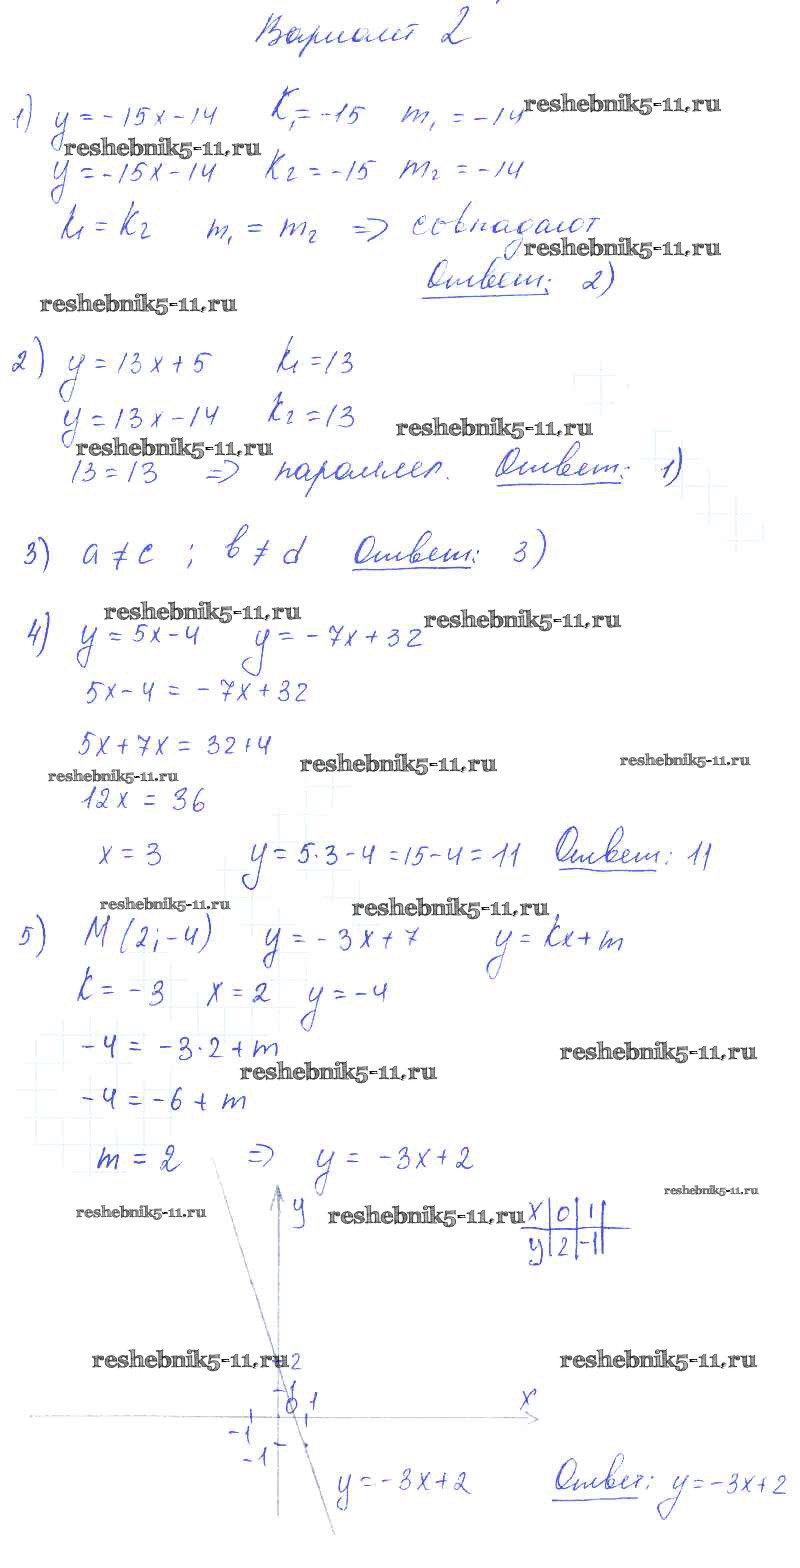 Вариант 2
1) y = -15x - 14 K₁ = -15 m₁ = -14 reshebnik5-11.ru
reshebnik5-11.ru
y = -15x - 14 K₂ = -15 m₂ = -14
k₁ = K₂ m₁ = m₂ => совпадают
reshebnik5-11.ru
Ответ: 2)
reshebnik5-11.ru
2) y = 13x + 5 k₁ = 13
y = 13x - 14 K₂ = 13 reshebnik5-11.ru
reshebnik5-11.ru
13 = 13 => параллел. Ответ: 1)
3) a ≠ c ; b ≠ d Ответ: 3)
reshebnik5-11.ru reshebnik5-11.ru
4) y = 5x - 4 y = - 7x + 32
5x - 4 = - 7x + 32
5x + 7x = 32 + 4
reshebnik5-11.ru reshebnik5-11.ru reshebnik5-11.ru
12x = 36
x = 3 y = 5·3 - 4 = 15 - 4 = 11 Ответ: 11
reshebnik5-11.ru reshebnik5-11.ru
5) M (2; -4) y = - 3x + 7 y = kx + m
K = - 3 x = 2 y = -4
-4 = -3·2 + m
reshebnik5-11.ru reshebnik5-11.ru
-4 = -6 + m
m = 2 => y = -3x + 2
reshebnik5-11.ru
reshebnik5-11.ru y reshebnik5-11.ru x 0 1
y 2 -1
reshebnik5-11.ru 2 reshebnik5-11.ru
1
0 1 x
-1
-1
y = -3x + 2 Ответ: y = -3x + 2